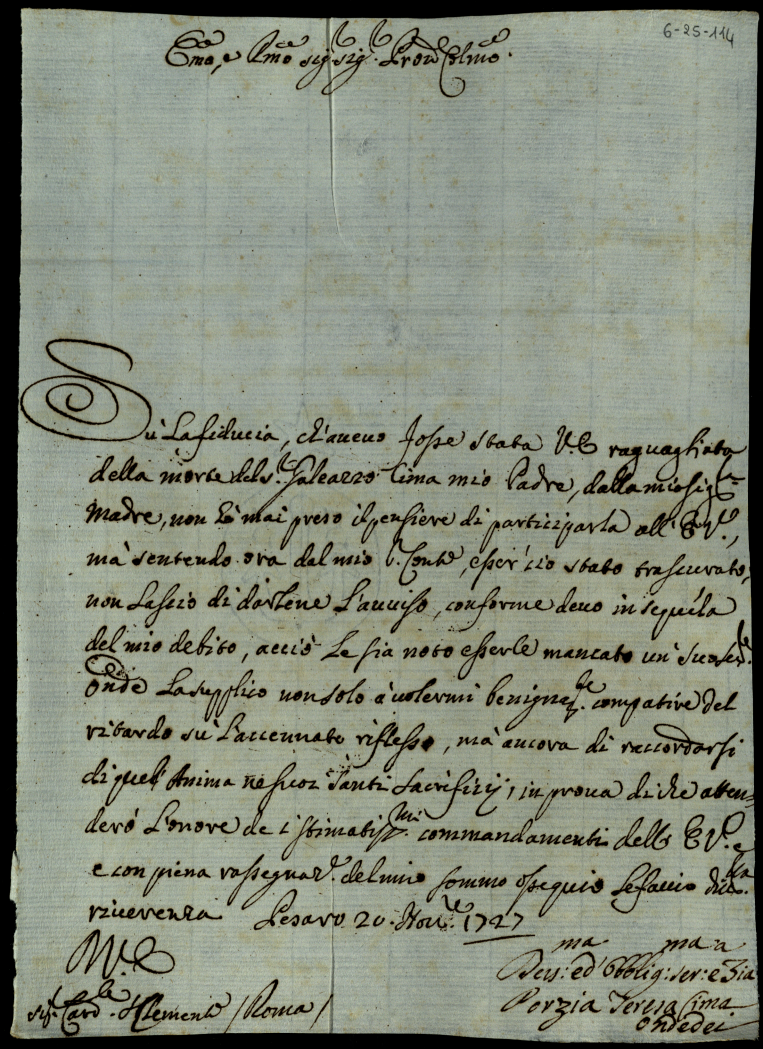 6-25-114
Em̃o, e Rm̃o sig.r sig.r Prõn Colmo.
Sù la fiducia, ch'avevo fosse stata V.E. raguagliata
della morte del S.r Galeazzo Cima mio Padre, dalla mia sig.ra
Madre, non hò mai preso il pensiere di participarla all'E.V.,
mà sentendo ora dal mio S. Conte, esser ciò stato trascurato,
non lascio di darlene l'avviso, conforme devo in sequéla
del mio debito, acciò le sia noto esserle mancato un suo
Onde la supplico non solo à volermi benignam.te compatire del
ritardo sù l'accennato riflesso, mà ancora di raccordarsi
di quell'Anima ne suoi Santi Sacrifizij, in prova di che atten=
derò l'onore de i stimatiss.mi commandamenti dell'E.V. e
e con piena rassegnaz.e del mio sommo ossequio le faccio
riverenza Pesaro 20. Nov.e 1727
D.V.E.
Sig.r Card.le S. Clemente / Roma /
Dev.ma ed Obblig.ma ser.a e Zia
Porzia Teresa Cima
Ondedei